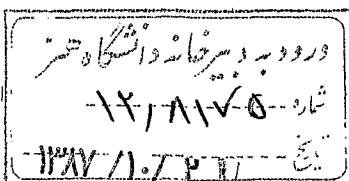 ورود به دبیرخانه دانشگاه هنر
شماره ۱۲,۸۱۷۵
تاریخ ۱۳۸۷/۱۰/